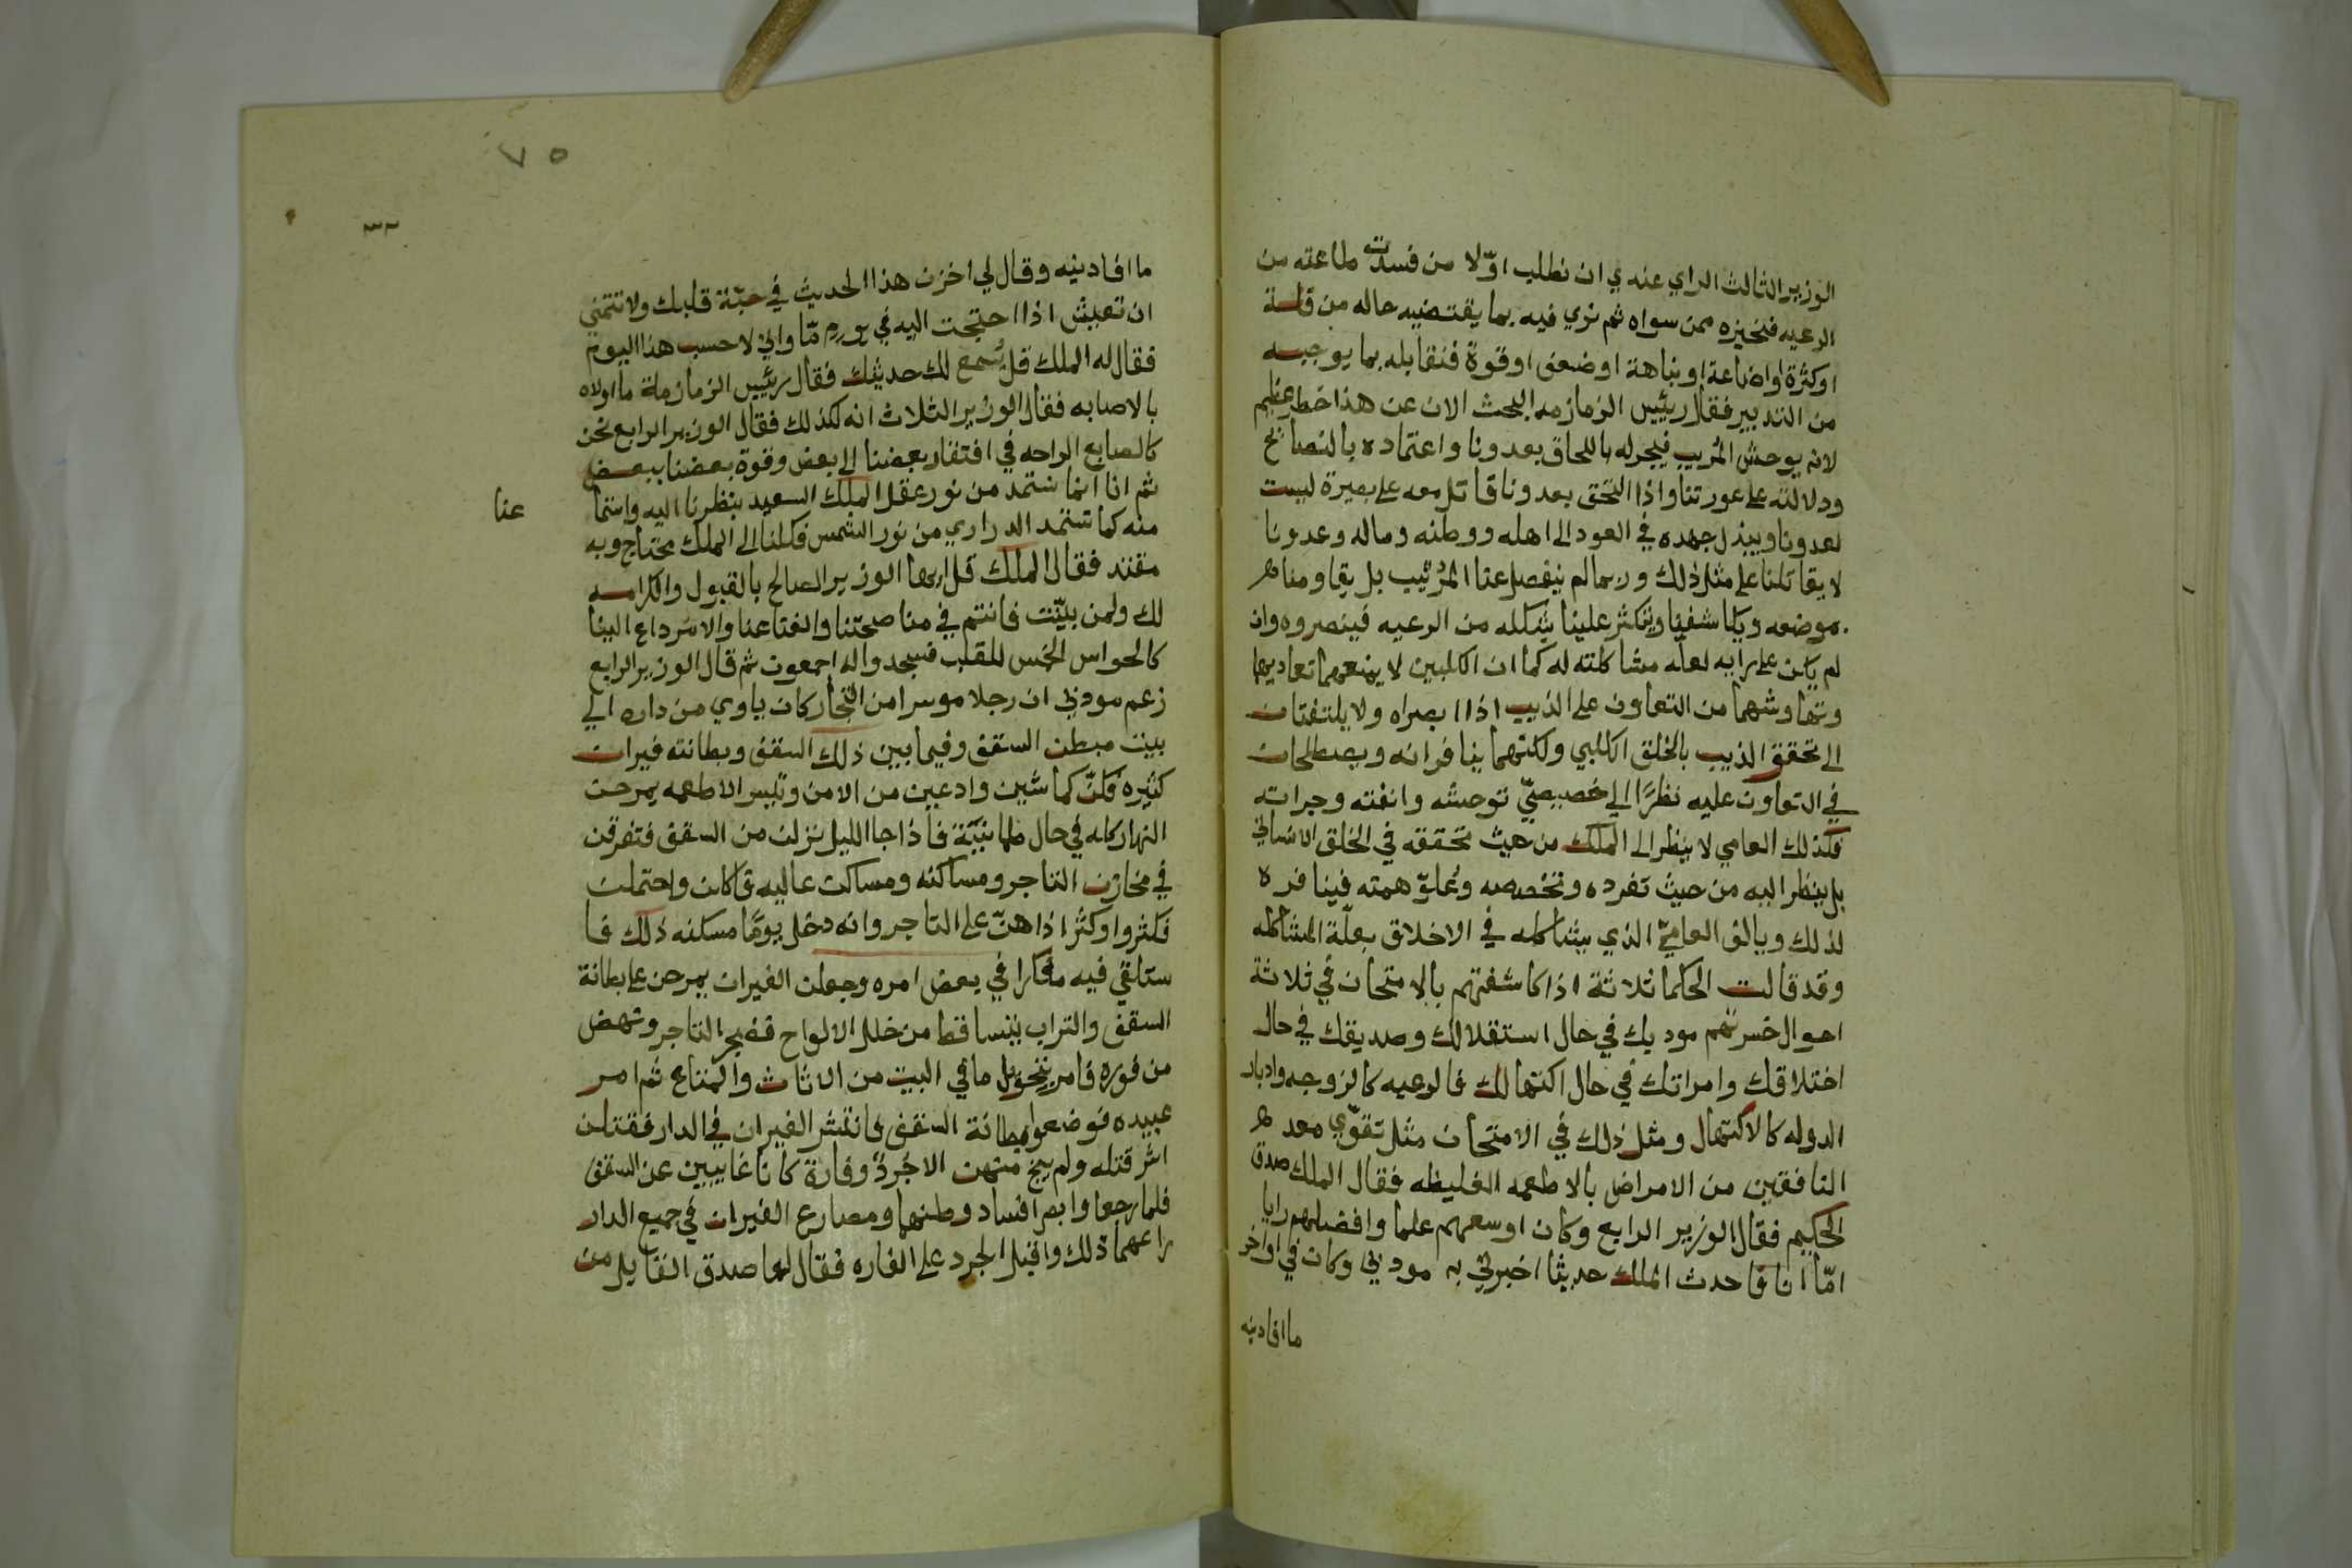 الوزير الثالث الراي عندي ان نطلب اوّلا من فسدت طاعته من
الرعيه فنخيزه ممن سواه ثم نري فيه بما يقتضيه حاله من قلة
او كثرة او اضاعة او نباهة او ضعف او قوة فنقابله بما يوجبه
من التدبير فقال ريئيس الزمازمه البحث الان عن هذا خطر عظيم
لانه يوحش المُريب فيجرله باللحاق بعدونا واعتماده بالنصايح
ودلالته على عورتنا واذا التحق بعدونا قاتل معه على بصيرة ليست
لعدونا ويبذل جهده في العود الى اهله ووطنه وماله وعدونا
لا يقاتلنا على مثل ذلك وربما لم ينفصل عنا المُرئيب بل يقاومنا من
موضعه ويكاشفنا ويتكثر علينا بشكله من الرعيه فينصروه وان
لم يكن على رايه لعلّه مشاكلته له كما ان الكلبين لا يمنعهما تعاديهما
وتهاوشهما من التعاون على الذيب اذا ابصراه ولا يلتفتان
الى تحقق الذيب بالخلق الكلبي ولكنهما ينافرانه ويصطلحان
في التعاون عليه نظرًا الي خصيصيّ توحشه وانفته وجراته
فكذلك العامي لا ينظر الى الملك من حيث تحققه في الخلق الانساني
بل ينظر اليه من حيث تفرده وتخصصه وعُلوّ همته فينافره
لذلك ويالف العاميّ الذي يشاكله في الاخلاق بعلّة المشاكله
وقد قالت الحكما ثلاثة اذا كاشفتهم بالامتحان في ثلاثة
احوال خسرتهم موديك في حال استقلالك وصديقك في حال
اختلاقك وامراتك في حال اكتهالك فالرعيه كالزوجه وادبار
الدوله كالاكتهال ومثل ذلك في الامتحان مثل تقوّي معد
الناقهين من الامراض بالاطعمه الغليظه فقال الملك صدق
الحكيم فقال الوزير الرابع وكان اوسعهم علما وافضلهم رايا
امّا انا فاحدث الملك حديثا اخبرني به مودبي وكان في اواخر
ما افادنيه
٧٥
ما افادنيه وقال لي اخزن هذا الحديث في حبّة قلبك ولا تتمني
ان تعيش اذا احتجت اليه في يوم مّا واني لاحسب هذا اليوم
فقال له الملك قل يُسمع لك حديثك فقال رئيس الزمازمة ما اولاه
بالاصابه فقال الوزير الثلاث انه لكذلك فقال الوزير الرابع نحن
كالصابع الراحه في افتقار بعضنا الى بعض وقوة بعضنا ببعض
ثم انا انما نستمد من نور عقل الملك السعيد بنظرنا اليه واستما
عنا
منه كما تستمد الدراري من نور الشمس فكلنا الى الملك محتاج وبه
مقتد فقال الملك قل ايها الوزير الصالح بالقبول والكرامه
لك ولمن بيّنت فانتم في مناصحتنا والغناعنا والاسرداع الينا
كالحواس الخمس للقلب فسجدوا له اجمعون ثم قال الوزير الرابع
زعم مودبي ان رجلا موسرا من التجار كان ياوي من داره الي
بيت مبطن السقف وفيما بين ذلك السقف وبطانته فيران
كثيره فكنّ كما شين وادعين من الامن وتيسر الاطعمه يمرحن
النهار كله في حال طمانينة فاذا جا الليل نزلن من السقف فتفرقن
في مخازن التاجر ومساكنه ومساكت عاليه فاكلن واحتملن
فكثروا وكثر اذاهنّ على التاجر وانه دخل يومًا مسكنه ذلك فا
ستلقي فيه مفكرا في بعض امره وجعلن الفيران يمرحن على بطانة
السقف والتراب يتساقط من خلل الالواح فضجر التاجر ونهض
من فوره فامر بتحويل ما في البيت من الاثاث والمتاع ثم امر
عبيده فوضعوا بطانة السقف فانتشر الفيران في الدار فقتلن
اشر قتله ولم ينج منهن الا جُرذ وفارة كانا غايبين عن السقف
فلما رجعا وابصرا فساد وطنهما ومصارع الفيران في جميع الدار
راعهما ذلك واقبل الجرد على الفاره فقال لها صدق القايل من